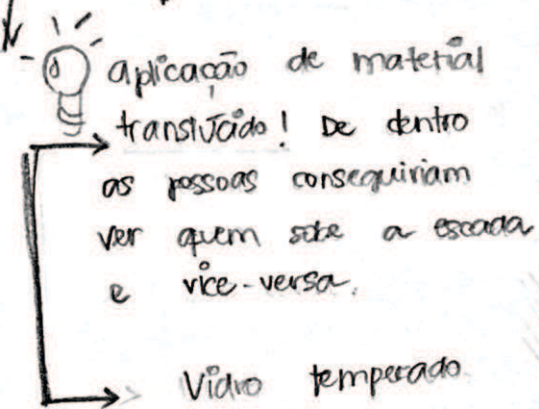 aplicação de material
translúcido! De dentro
as pessoas conseguiriam
ver quem sobe a escada
e vice-versa.
Vidro temperado